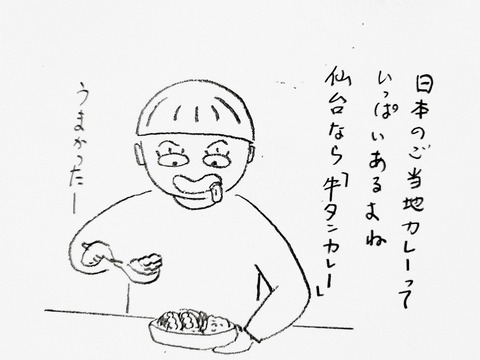 日本のご当地カレーって
いっぱいあるよね
仙台なら「牛タンカレー」
うまかったー